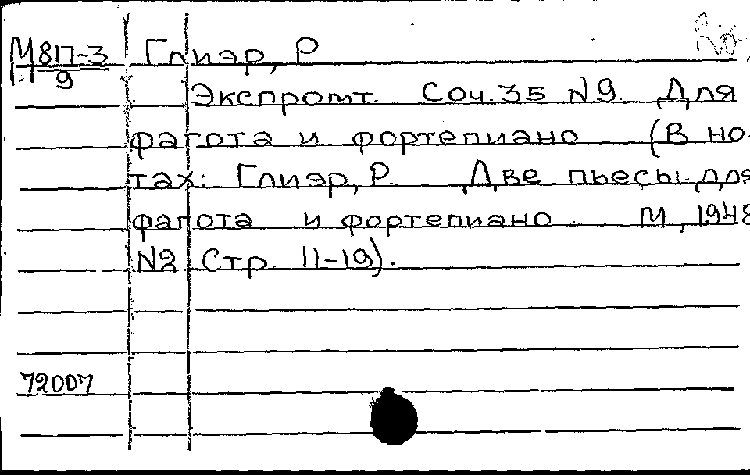 М817-3 Глиэр, Р
9
Экспромт. Соч. 35 N9. Для
фагота и фортепиано (В но-
тах: Глиэр, Р. Две пьесы для
фагота и фортепиано. М, 1948
N2 Стр 11-19).
72007